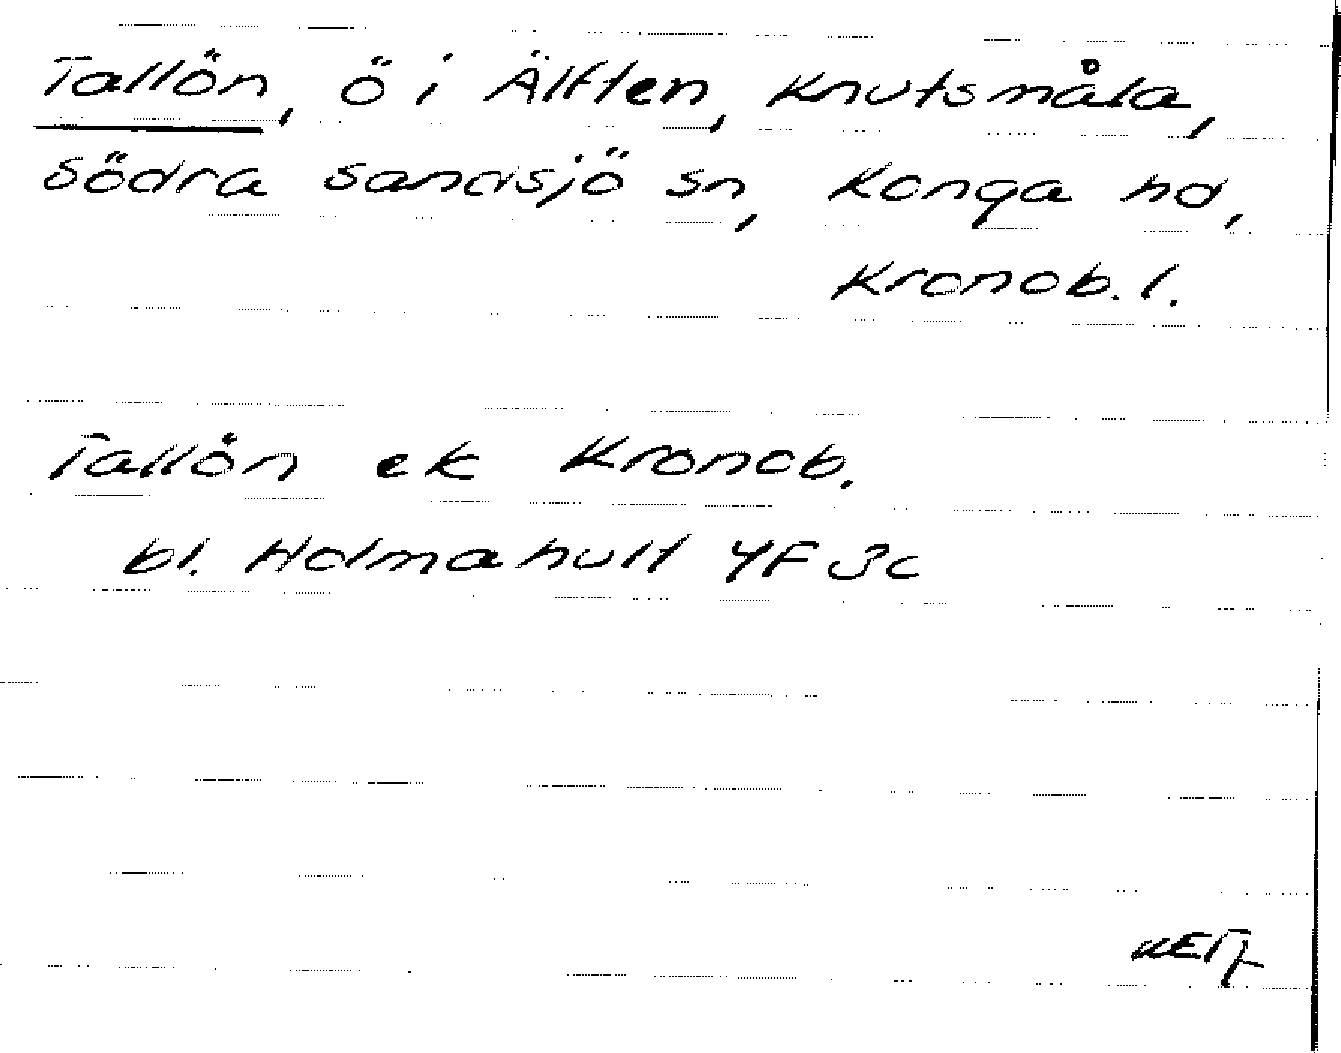 Tallön, ö i Älften, Knutsmåla,
Södra Sandsjö sn, Konga hd,
Kronob. l.
Tallön ek Kronob.
bl. Holmahult 4F 3c